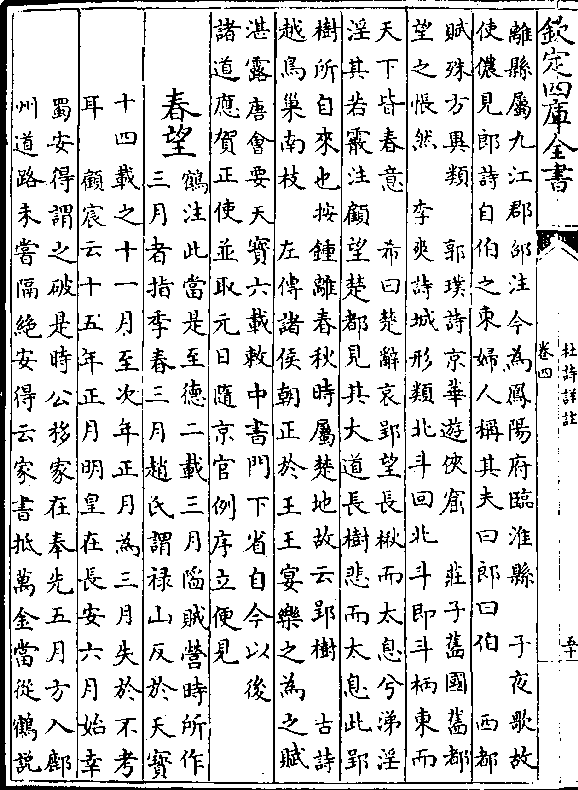 欽定四庫全書
杜詩詳註
卷四
離縣屬九江郡邱注今為鳳陽府臨淮縣　子夜歌故
使儂見郎詩自伯之東婦人稱其夫曰郎曰伯　西都
賦殊方異類　郭璞詩京華遊俠窟　莊子舊國舊都
望之悵然　李爽詩城形類北斗回北斗即斗柄東而
天下皆春意　希曰楚辭哀郢望長楸而太息兮涕淫
淫其若霰注顧望楚都見其大道長樹悲而太息此郢
樹所自來也按鍾離春秋時屬楚地故云郢樹　古詩
越鳥巢南枝　左傳諸侯朝正於王王宴樂之為之賦
湛露唐會要天寶六載敕中書門下省自今以後
諸道應賀正使並取元日隨京官例序立便見
春望
鶴注此當是至德二載三月陷賊營時所作
三月者指季春三月趙氏謂禄山反於天寶
十四載之十一月至次年正月為三月失於不考
耳　顧宸云十五年正月明皇在長安六月始幸
蜀安得謂之破是時公移家在奉先五月方入鄜
州道路未嘗隔絶安得云家書抵萬金當從鶴説